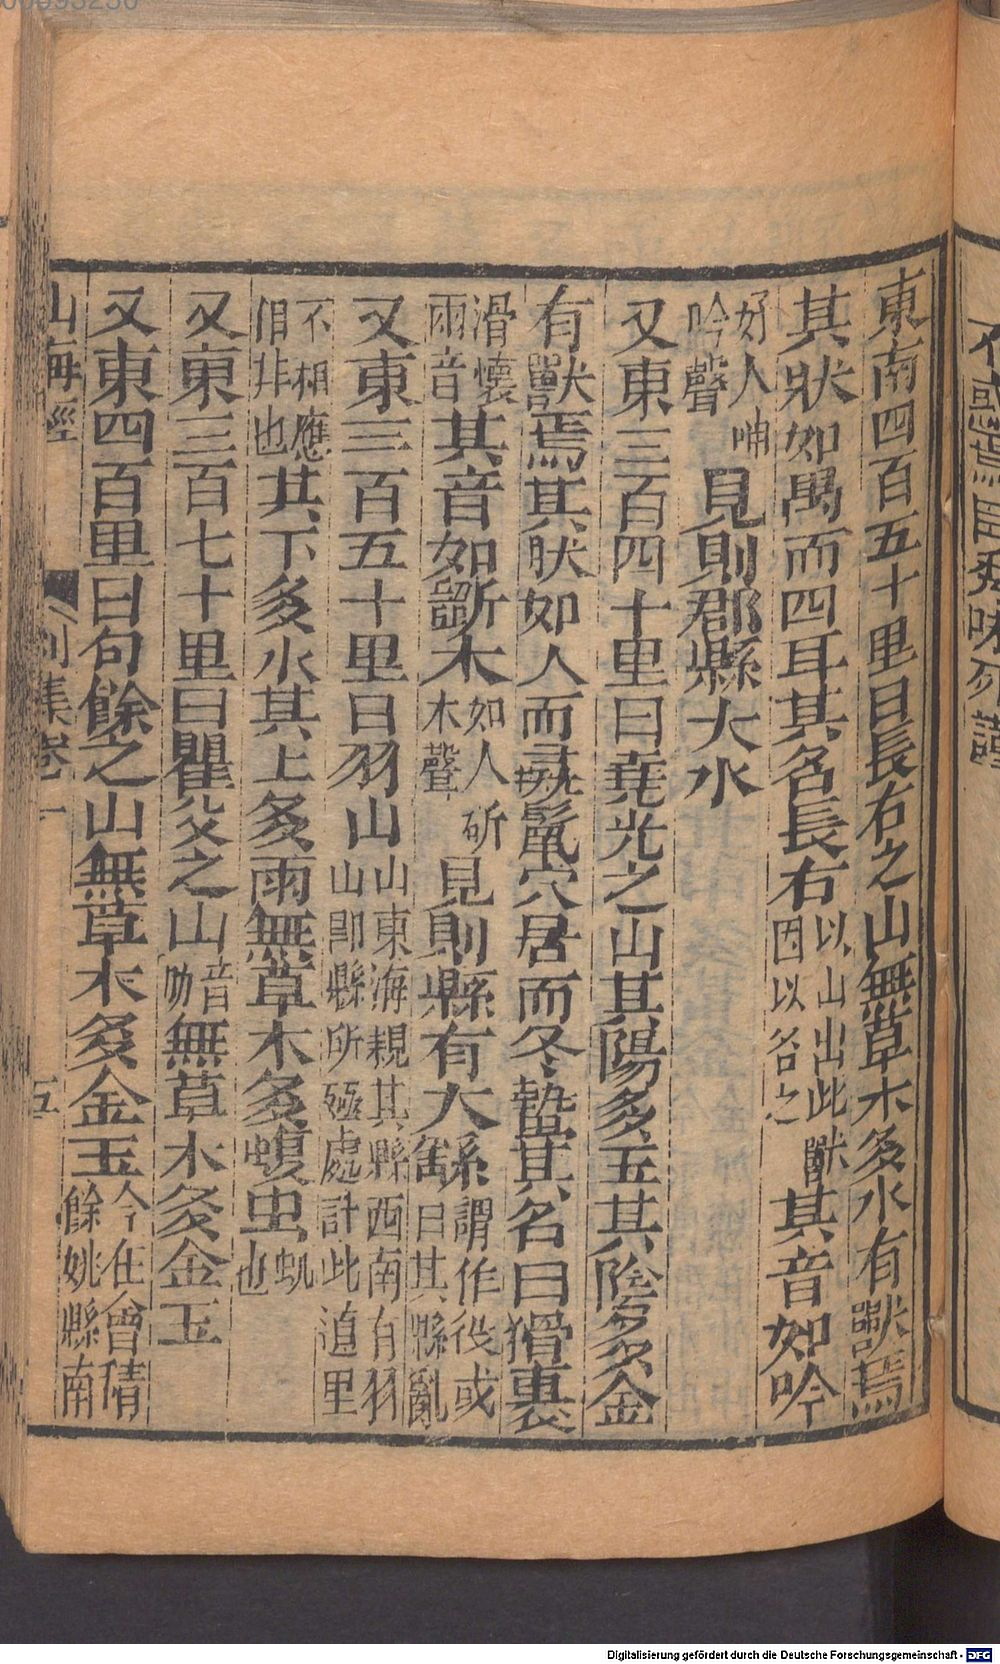 東南四百五十里曰長右之山無草木多水有獸焉
其狀如禺而四耳其名長右以山出此獸因以名之其音如吟
如人呻吟聲見則郡縣大水
又東三百四十里曰堯光之山其陽多玉其陰多金
有獸焉其狀如人而彘鬣穴居而冬蟄其名曰猾褢
滑懷兩音其音如斲木如人斫木聲見則縣有大繇謂作役或曰其縣亂
又東三百五十里曰羽山山東海祝其縣西南有羽山即鯀所殛處計此道里
不相應似非也其下多水其上多雨無草木多蝮虫虺也
又東三百七十里曰瞿父之山音劬無草木多金玉
又東四百里曰句餘之山無草木多金玉今在會稽餘姚縣南
山海經
卷一
五
Digitalisierung gefördert durch die Deutsche Forschungsgemeinschaft - DFG